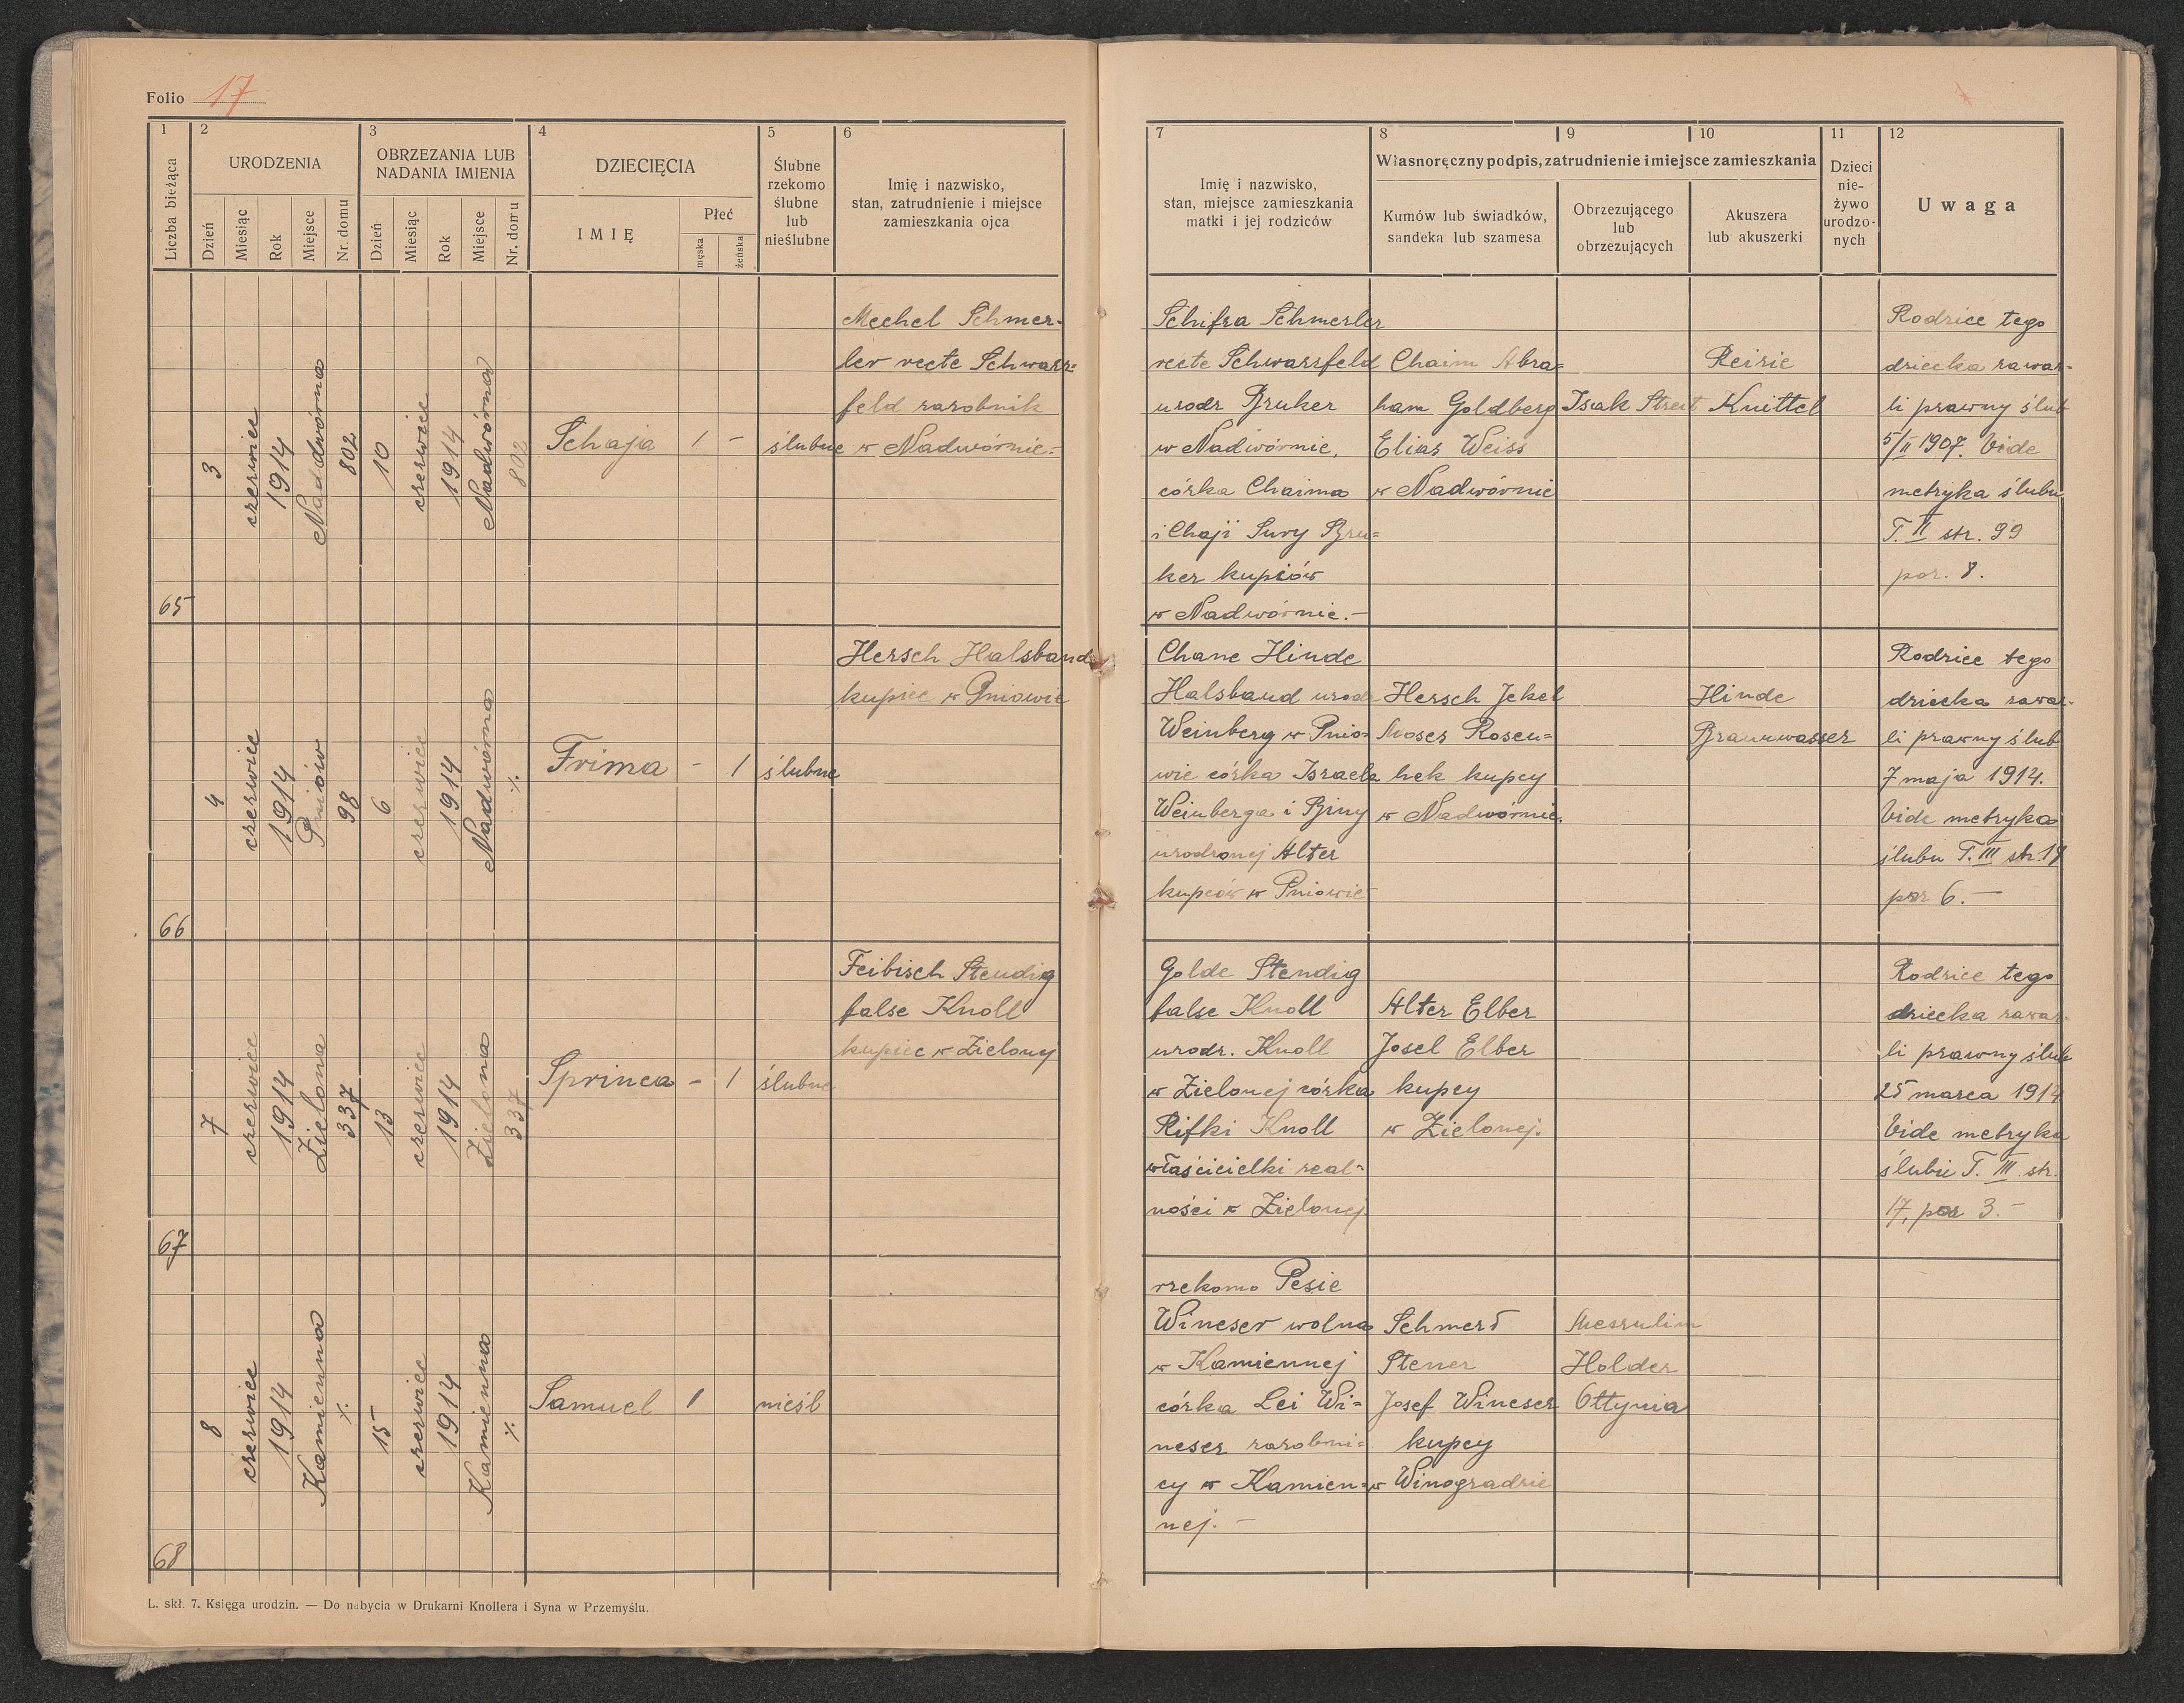 Folio 17
1 2 3 4 5 6
Liczba bieżąca
URODZENIA
OBRZEZANIA LUB
NADANIA IMIENIA
DZIECIĘCIA
Ślubne
rzekomo
ślubne
lub
nieślubne
Imię i nazwisko,
stan, zatrudnienie i miejsce
zamieszkania ojca
Dzień Miesiąc Rok Miejsce Nr. domu
Dzień Miesiąc Rok Miejsce Nr. domu
IMIĘ
Płeć
męska żeńska
7 8 9 10 11 12
Imię i nazwisko,
stan, miejsce zamieszkania
matki i jej rodziców
Własnoręczny podpis, zatrudnienie i miejsce zamieszkania
Kumów lub świadków,
sandeka lub szamesa
Obrzezującego
lub
obrzezujących
Akuszera
lub akuszerki
Dzieci
nie-
żywo
urodzo-
nych
Uwaga
65
3 czerwiec 1914 Naddwórna 802
10 czerwiec 1914 Nadwórna 802
Schaja 1 -
ślubne
Mechel Schmer-
ler recte Schwarz=
feld zarobnik
w Nadwórnie.-
Schifra Schmerler
recte Schwarzfeld
urodz Bruker
w Nadwórnie,
córka Chaima
i Chaji Sury Bru=
ker kupców
w Nadwórnie.-
Chaim Abra=
ham Goldberg
Elias Weiss
w Nadwórnie
Isak Streit
Reizie
Knittel
Rodzice tego
dziecka zawar-
li prawny ślub
5/II 1907. Vide
metryka ślubu
T. II str. 99
poz. 8.
66
4 czerwiec 1914 Pniów 98
6 czerwiec 1914 Nadwórna ./.
Frima - 1
ślubne
Hersch Halsband
kupiec w Pniowie
Chane Hinde
Halsband urodz
Weinberg w Pnio-
wie córka Israela
Weinberga i Biny
urodzonej Alter
kupców w Pniowie
Hersch Jekel
Moses Rosen=
hek kupcy
w Nadwórnie.
Hinde
Braunwasser
Rodzice tego
dziecka zawar-
li prawny ślub
7 maja 1914.
Vide metryka
ślubu T. III str. 18
poz 6. —
67
7 czerwiec 1914 Zielona 337
13 czerwiec 1914 Zielona 337
Sprinca - 1
ślubne
Feibisch Stendig
false Knoll
kupiec w Zielonej
Golde Stendig
false Knoll
urodz. Knoll
w Zielonej córka
Rifki Knoll
właścicielki real-
ności w Zielonej.
Alter Elber
Josel Elber
kupcy
w Zielonej.
Rodzice tego
dziecka zawar-
li prawny ślub
25 marca 1914
Vide metryka
ślubu T. III str.
17, poz 3.-
68
8 czerwiec 1914 Kamienna ./.
15 czerwiec 1914 Kamienna ./.
Samuel 1
nieśl
rzekomo Pesie
Wineser wolna
w Kamiennej
córka Lei Wi=
neser zarobni=
cy w Kamien=
nej. —
Schmerl
Stener
Josef Wineser
kupcy
w Winogradzie
Meszulim
Holder
Ottynia
L. skł. 7. Księga urodzin. — Do nabycia w Drukarni Knollera i Syna w Przemyślu.